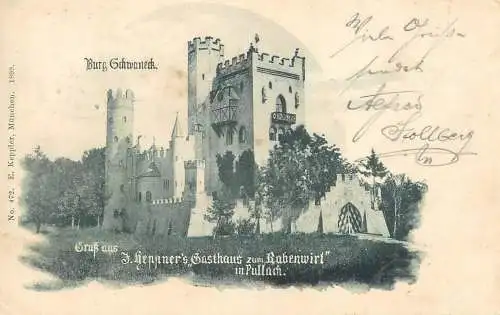 Burg Schwaneck.
Viele Grüße
sendet
Stollberg
No. 472. E. Keppler, München. 1898.
Gruß aus
J. Heppner's „Gasthaus zum Rabenwirt"
in Pullach.